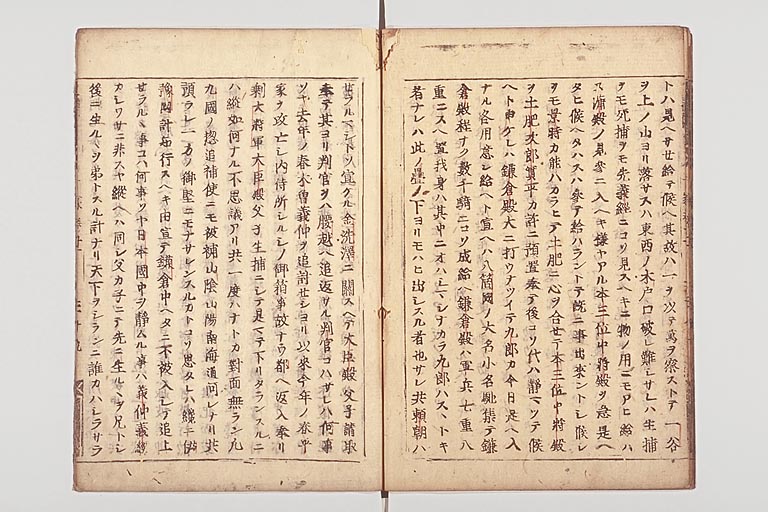 トハ見ヘサせ給テ候ヘ其故ハ一ヲ以テ萬ヲ察ストテ一谷
ヲ上ノ山ヨリ落サスハ東西ノ木戸口破レ難シサレハ生捕
ヲモ死捕ヲモ先義經ニコソ見スヘキニ物ノ用ニモアヒ給ハ
ス蒲殿ノ見參ニ入ヘキ様ヤアル本三位中將殿ヲ急是ヘ
タヒ候ヘタハスハ參テ給ハラントテ既ニ事出來ントレ候レ
ヲモ景時カ能ハカラヒテ土肥ニ心ヲ合せテ本三位中將殿
ヲ土肥次郎實平カ許ニ預置奉テ後コソ代ハ靜マツテ候
ヘト申ケレハ鎌倉殿大ニ打ウアツイテ九郎カ今日是ヘ入
ナル各用意シ給ヘト宣ヘハ八箇國ノ大名小名馳集テ鎌
倉殿程ナク數千騎ニコソ成給ヘ鎌倉殿ハ軍兵七重八
重ニスヘ置我身ハ其中ニオハシマシナカラ九郎ハスヽトキ
者ナレハ此ノ疊ノ下ヨリモハヒ出レスル者也サレ共頼朝ハ
せラルマシトソ宣クル金洗澤ニ關スヘテ大臣殿父子請取
奉テ其ヨリ判官ヲハ腰越ヘ追返サル判官コハサレハ何事
ソヤ去年ノ春木曽義仲ヲ追討せシヨリ以來今年ノ春平
家ヲ攻亡レ内侍所シルシノ御箱事故ナウ都ヘ返入奉リ
剰大將軍大臣殿父子生捕ニレテ是マテ下リタランスルニ
ハ縱如何ナル不思議アリ共一度ハナトカ對面無ラン九
九國ノ惣追補使ニモ被補山陰山陽南海道何レナリ共
預ラレ一方ノ御堅ニモナサレンスルカトコソ思タレハ纔ニ伊
豫國計知行スヘキ由宣テ鎌倉中ヘタニ不被入レテ追上
せラルヽ事コハ何事ソヤ日本國中ヲ靜ムル事ハ義仲義經
カレワサニ非スヤ縱ヘハ同レ父カ子ニテ先ニ生ルヽヲ兄トシ
後ニ生ルヽヲ弟トスル計ナリ天下ヲシランニ誰カハレラサラ